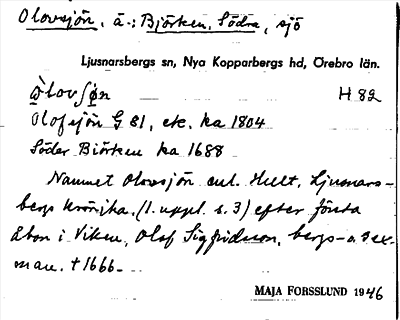 Olovsjön, ä.: Björken, Södra, sjö
Ljusnarsbergs sn, Nya Kopparbergs hd, Örebro län.
Olofsjön G 81, etc. ka 1804
H 82
Söder Biörken ka 1688
Namnet Olovsjön enl. Hult, Ljusnars-
bergs krönika. (1. uppl. s. 3) efter första
åbon i Viken, Olof Sigfridsson, bergs- o. sex-
man. † 1666.
MAJA FORSSLUND 1946